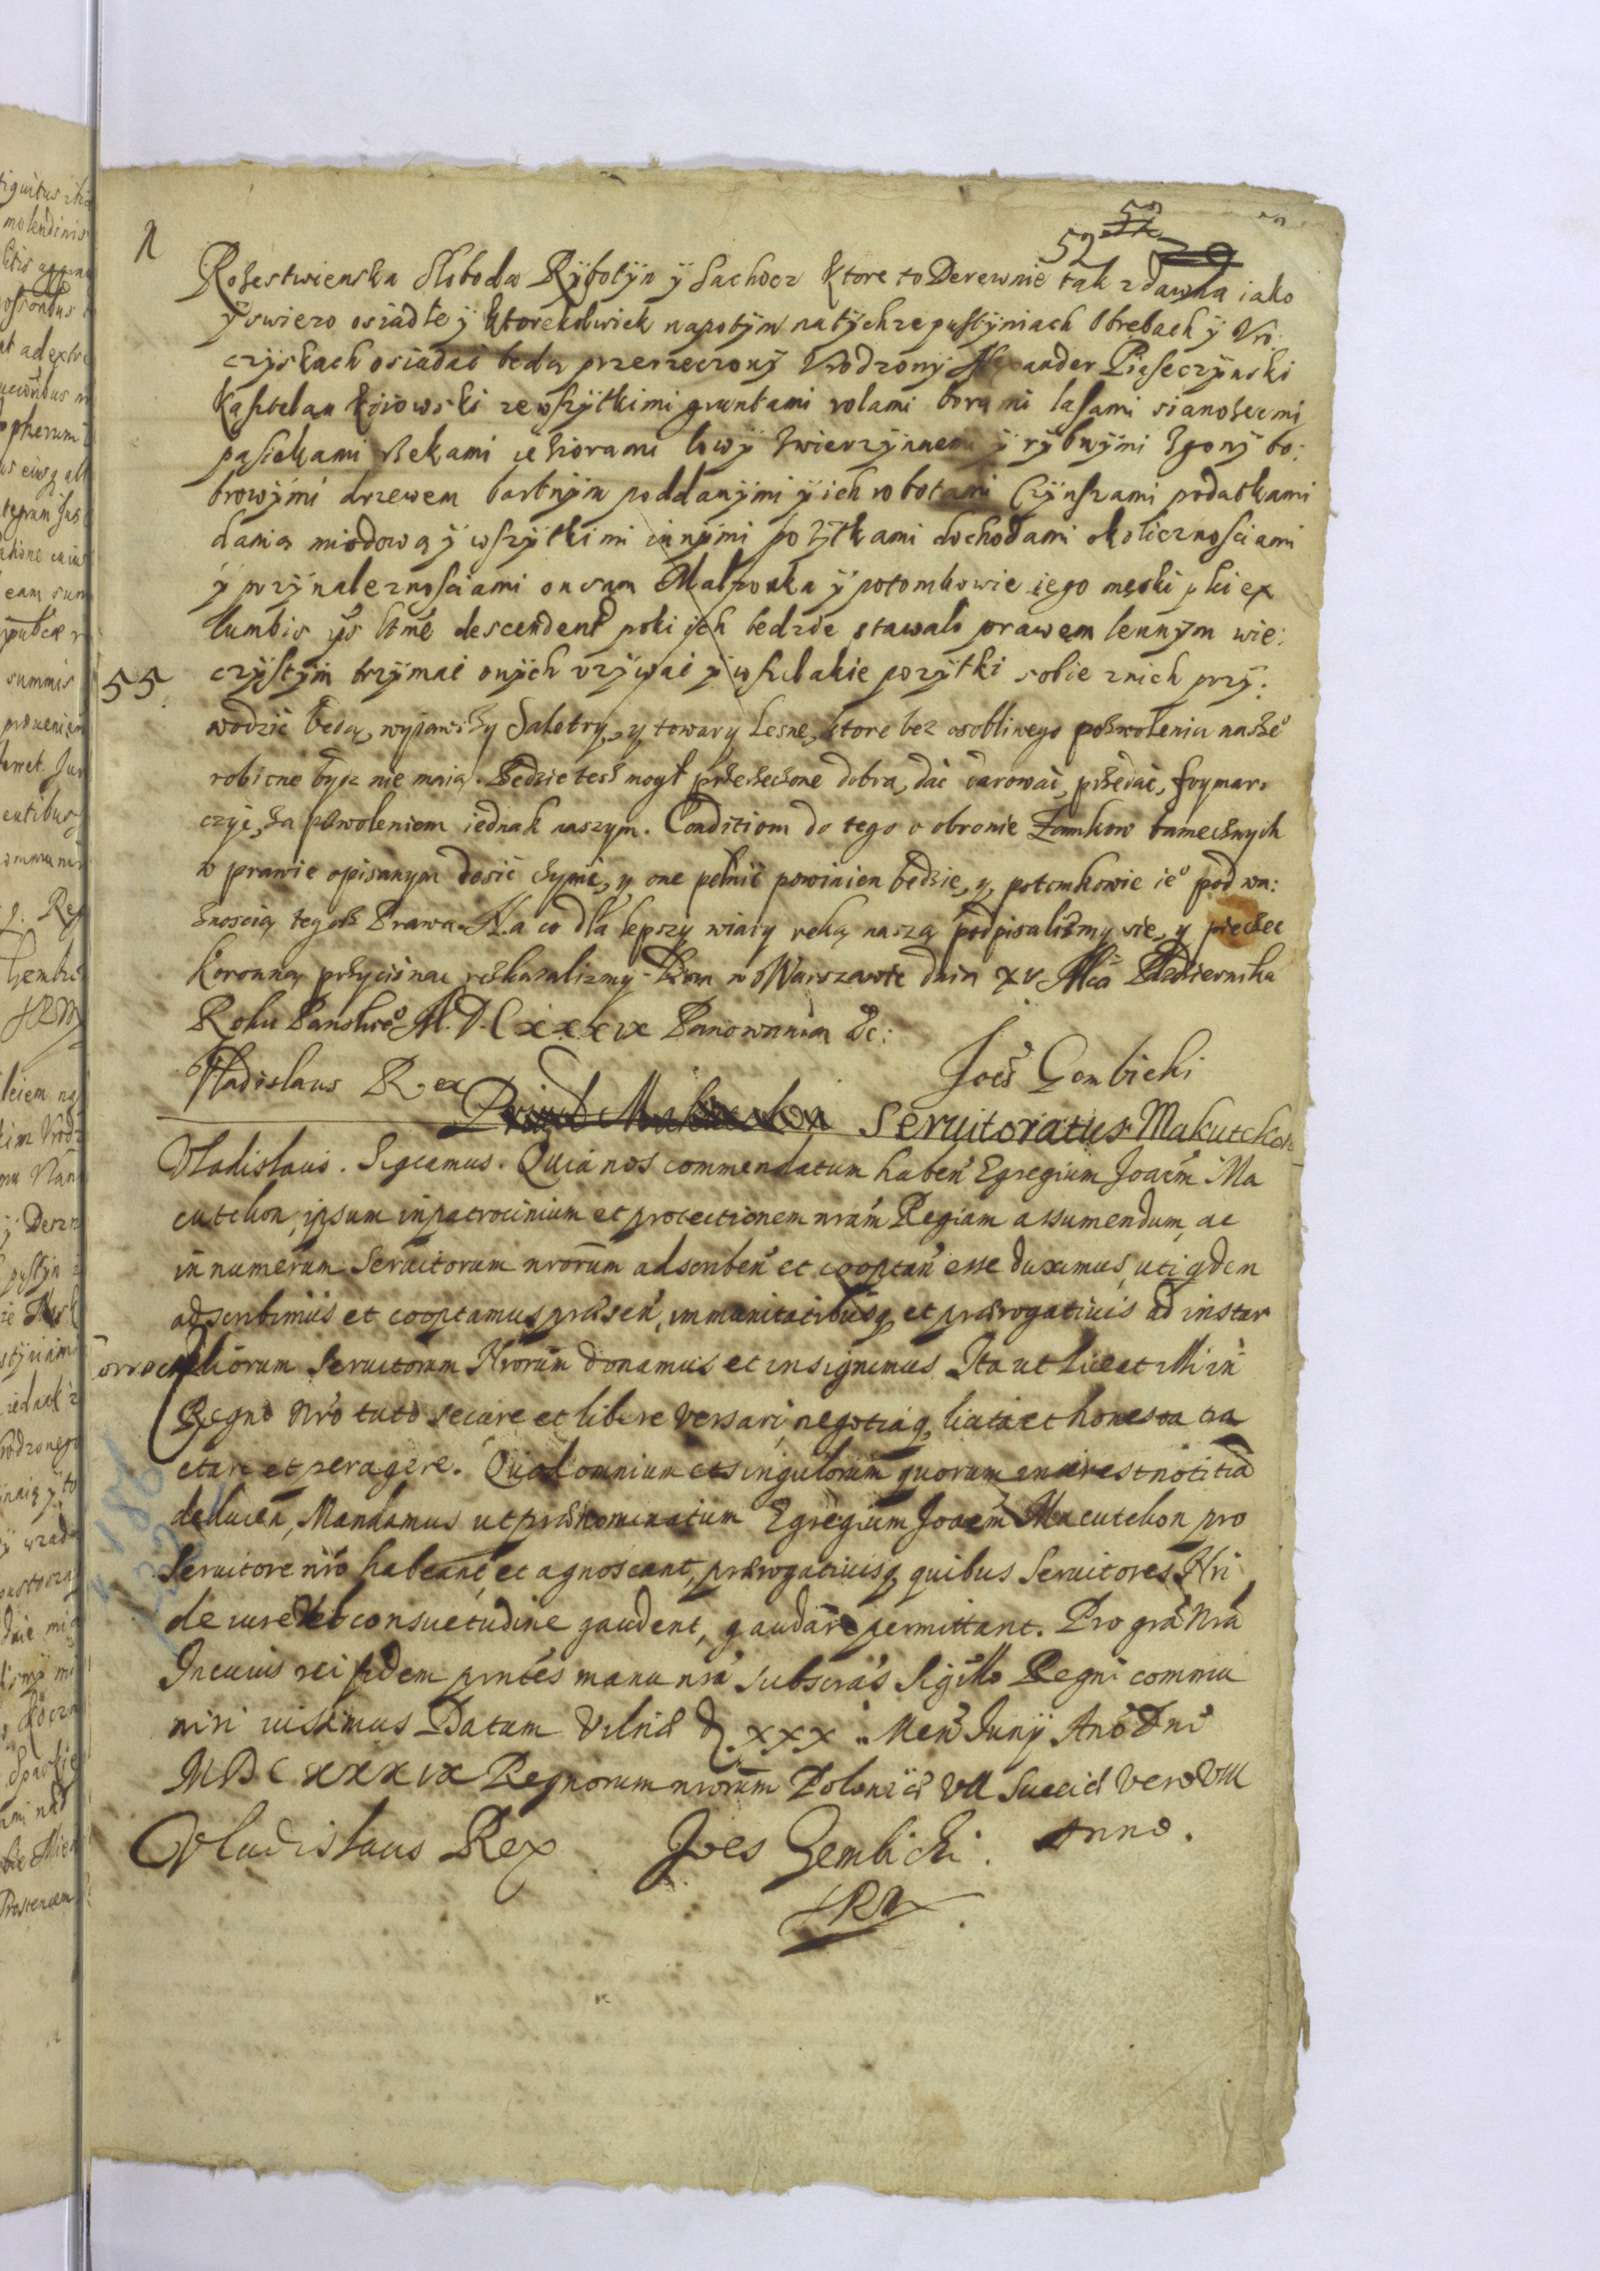 52
Rożestwienska Słoboda Rybotyn ÿ Sachocz ktore to Derewnie tak zdawna iako
ÿ swiezo osiadłe ÿ ktorekolwiek napotym natÿchze pustÿniach Obrebach ÿ Vro:
czÿskach osiadać beda przerzeczonÿ Vrodzonÿ Alexander Piaseczÿnski
Kasztelan Kijowski ze wszÿtkimi gruntami rolami borami lasami sianożecmi
pasiekami Rzekami ieziorami lowÿ Zwierzÿnnemi ÿ rÿbnÿmi Zgonÿ bo:
browÿmi drzewem bartnÿm poddanÿmi ÿ ich robotami Czÿnszami podatkami
danią miodową ÿ wszÿtkimi innÿmi pożÿtkami dochodami okolicznosciami
ÿ przÿnaleznosciami on sam Małżonka ÿ potomkowie iego męski płci ex
lumbis descendent poki ich bedzie stawało prawem lennÿm wie:
55. czÿstÿm trzÿmać onÿch vzÿwać ÿ wszelakie pozÿtki sobie znich przÿ:
wodzić będą, wyiąwszy Saletry, y towary Lesne, ktore bez osobliwego pozwolenia naszeo
robione bydz nie maią. Bedzie tesz mogł przerzeczone dobra, dać darować, przedać, frymar:
czyć, za pozwoleniem iednak naszym. Conditiom do tego o obronie Zamkow tamecznych
w prawie opisanym dosić czynić, y one pełnić powinien będzie, y potomkowie ieo pod wa:
żnoscią tegosz Prawa. Na co dla lepszy wiary ręką naszą podpisalismy się, y pieczęć
Koronną przycisnać roskazalismy. Dan w Warszawie dnia XV Mca Pazdziernika
Roku Panskieo M.D.C XXXIX Panowania &c:
Vladislaus Rex Joes Gembicki
Servitoriatus Makutchon
Vladislaus. Significamus. Quia nos commendatum haben Egregium Joaem Ma
cutchon, ipsum in patrocinium et protectionem nram Regiam assumendum, ac
in numerum Servitorum nrorum adscriben et cooptan esse duximus, uti qdem
adscribimus et cooptamus praesen, immunitatibusq et praerogativis ad instar
aliorum Servitorum Nrorum donamus et insignimus Ita ut liceat illi in
Regno Nro tuto secure et libere versari, negotiaq, licita et honesta tra
ctare et peragere. Quod omnium et singulorum quorum interest notitiae
deducen, Mandamus ut praenominatum Egregium Joaem Macutchon pro
Servitore nro habeant et agnoscant, praerogativisq quibus Servitores Nri
de iure et consuetudine gaudent, gaudere permittant. Pro gra Nra
In cuius rei fidem pntes manu nra subscras Sigillo Regni commu
niri iussimus Datum Vilnae d. XXX. Men Junÿ Ano Dni
MDCXXXIX Regnorum nrorum Poloniae VII Sueciae vero VIII
Anno.
Vladislaus Rex Joes Gembicki.